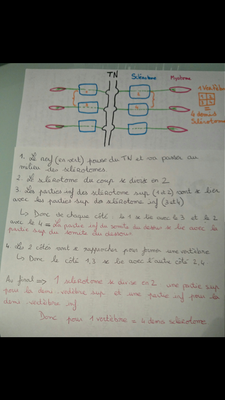 TN Sclérotome Myotome
1 Vertèbre
=
4 demi
sclérotome
1. Le nerf (en vert) pousse du TN et va passer au
milieu des sclérotomes
2. Le sclérotome du coup se divise en 2
3. Les parties inf des sclérotome sup (1 et 2) vont se lier
avec les parties sup du sclérotome inf (3 et 4)
↳ Donc de chaque côté le 1 se lie avec le 3 et le 2
avec le 4 = La partie inf du somite du dessus se lie avec la
partie sup du somite du dessous
4. Les 2 côtés vont se rapprocher pour former une vertèbre
↳ Donc le côté 1,3 se lie avec l'autre côté 2,4
Au final => 1 sclérotome se divise en 2 une partie sup
pour la demi vertèbre sup et une partie inf pour la
demi vertèbre inf
Donc pour 1 vertèbre = 4 demi sclérotome